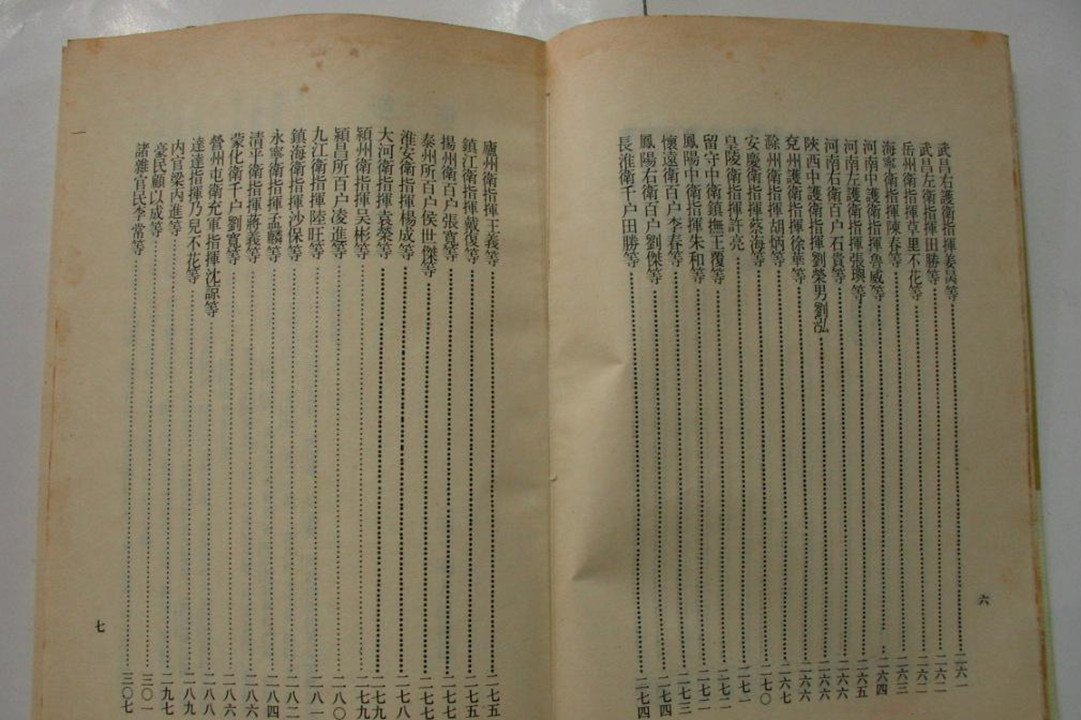 武昌右護衛指揮姜晟等⋯⋯二六一
武昌左衛指揮田勝等⋯⋯二六二
岳州衛指揮草里不花等⋯⋯二六二
海寧衛指揮陳春等⋯⋯二六三
河南中護衛指揮魯威等⋯⋯二六四
河南左護衛指揮張璵等⋯⋯二六五
河南右衛百户石貴等⋯⋯二六六
陝西中護衛指揮劉榮男劉泓⋯⋯二六六
兗州護衛指揮徐華等⋯⋯二六六
滁州衛指揮胡炳等⋯⋯二六七
安慶衛指揮蔡海等⋯⋯二七〇
皇陵衛指揮許亮⋯⋯二七一
留守中衛鎮撫王覆等⋯⋯二七二
鳳陽中衛指揮朱和等⋯⋯二七二
懷遠衛百户李春等⋯⋯二七三
鳳陽右衛百户劉傑等⋯⋯二七四
長淮衛千户田勝等⋯⋯二七四
六
廬州衛指揮王義等⋯⋯二七五
鎮江衛指揮戴復等⋯⋯二七五
揚州衛百户張寬等⋯⋯二七七
泰州所百户侯世傑等⋯⋯二七七
淮安衛指揮楊成等⋯⋯二七八
大河衛指揮袁榮等⋯⋯二七九
潁州衛指揮吴彬等⋯⋯二七九
潁昌所百户凌進等⋯⋯二八〇
九江衛指揮陸旺等⋯⋯二八一
鎮海衛指揮沙保等⋯⋯二八二
永寧衛指揮孟麟等⋯⋯二八四
清平衛指揮蔣義等⋯⋯二八六
蒙化衛千户劉寬等⋯⋯二八六
營州屯衛充軍指揮沈諒等⋯⋯二八八
達達指揮乃兒不花等⋯⋯二八九
内官梁内進等⋯⋯二九七
豪民顧以成等⋯⋯三〇一
諸雜官民李常等⋯⋯三〇七
七